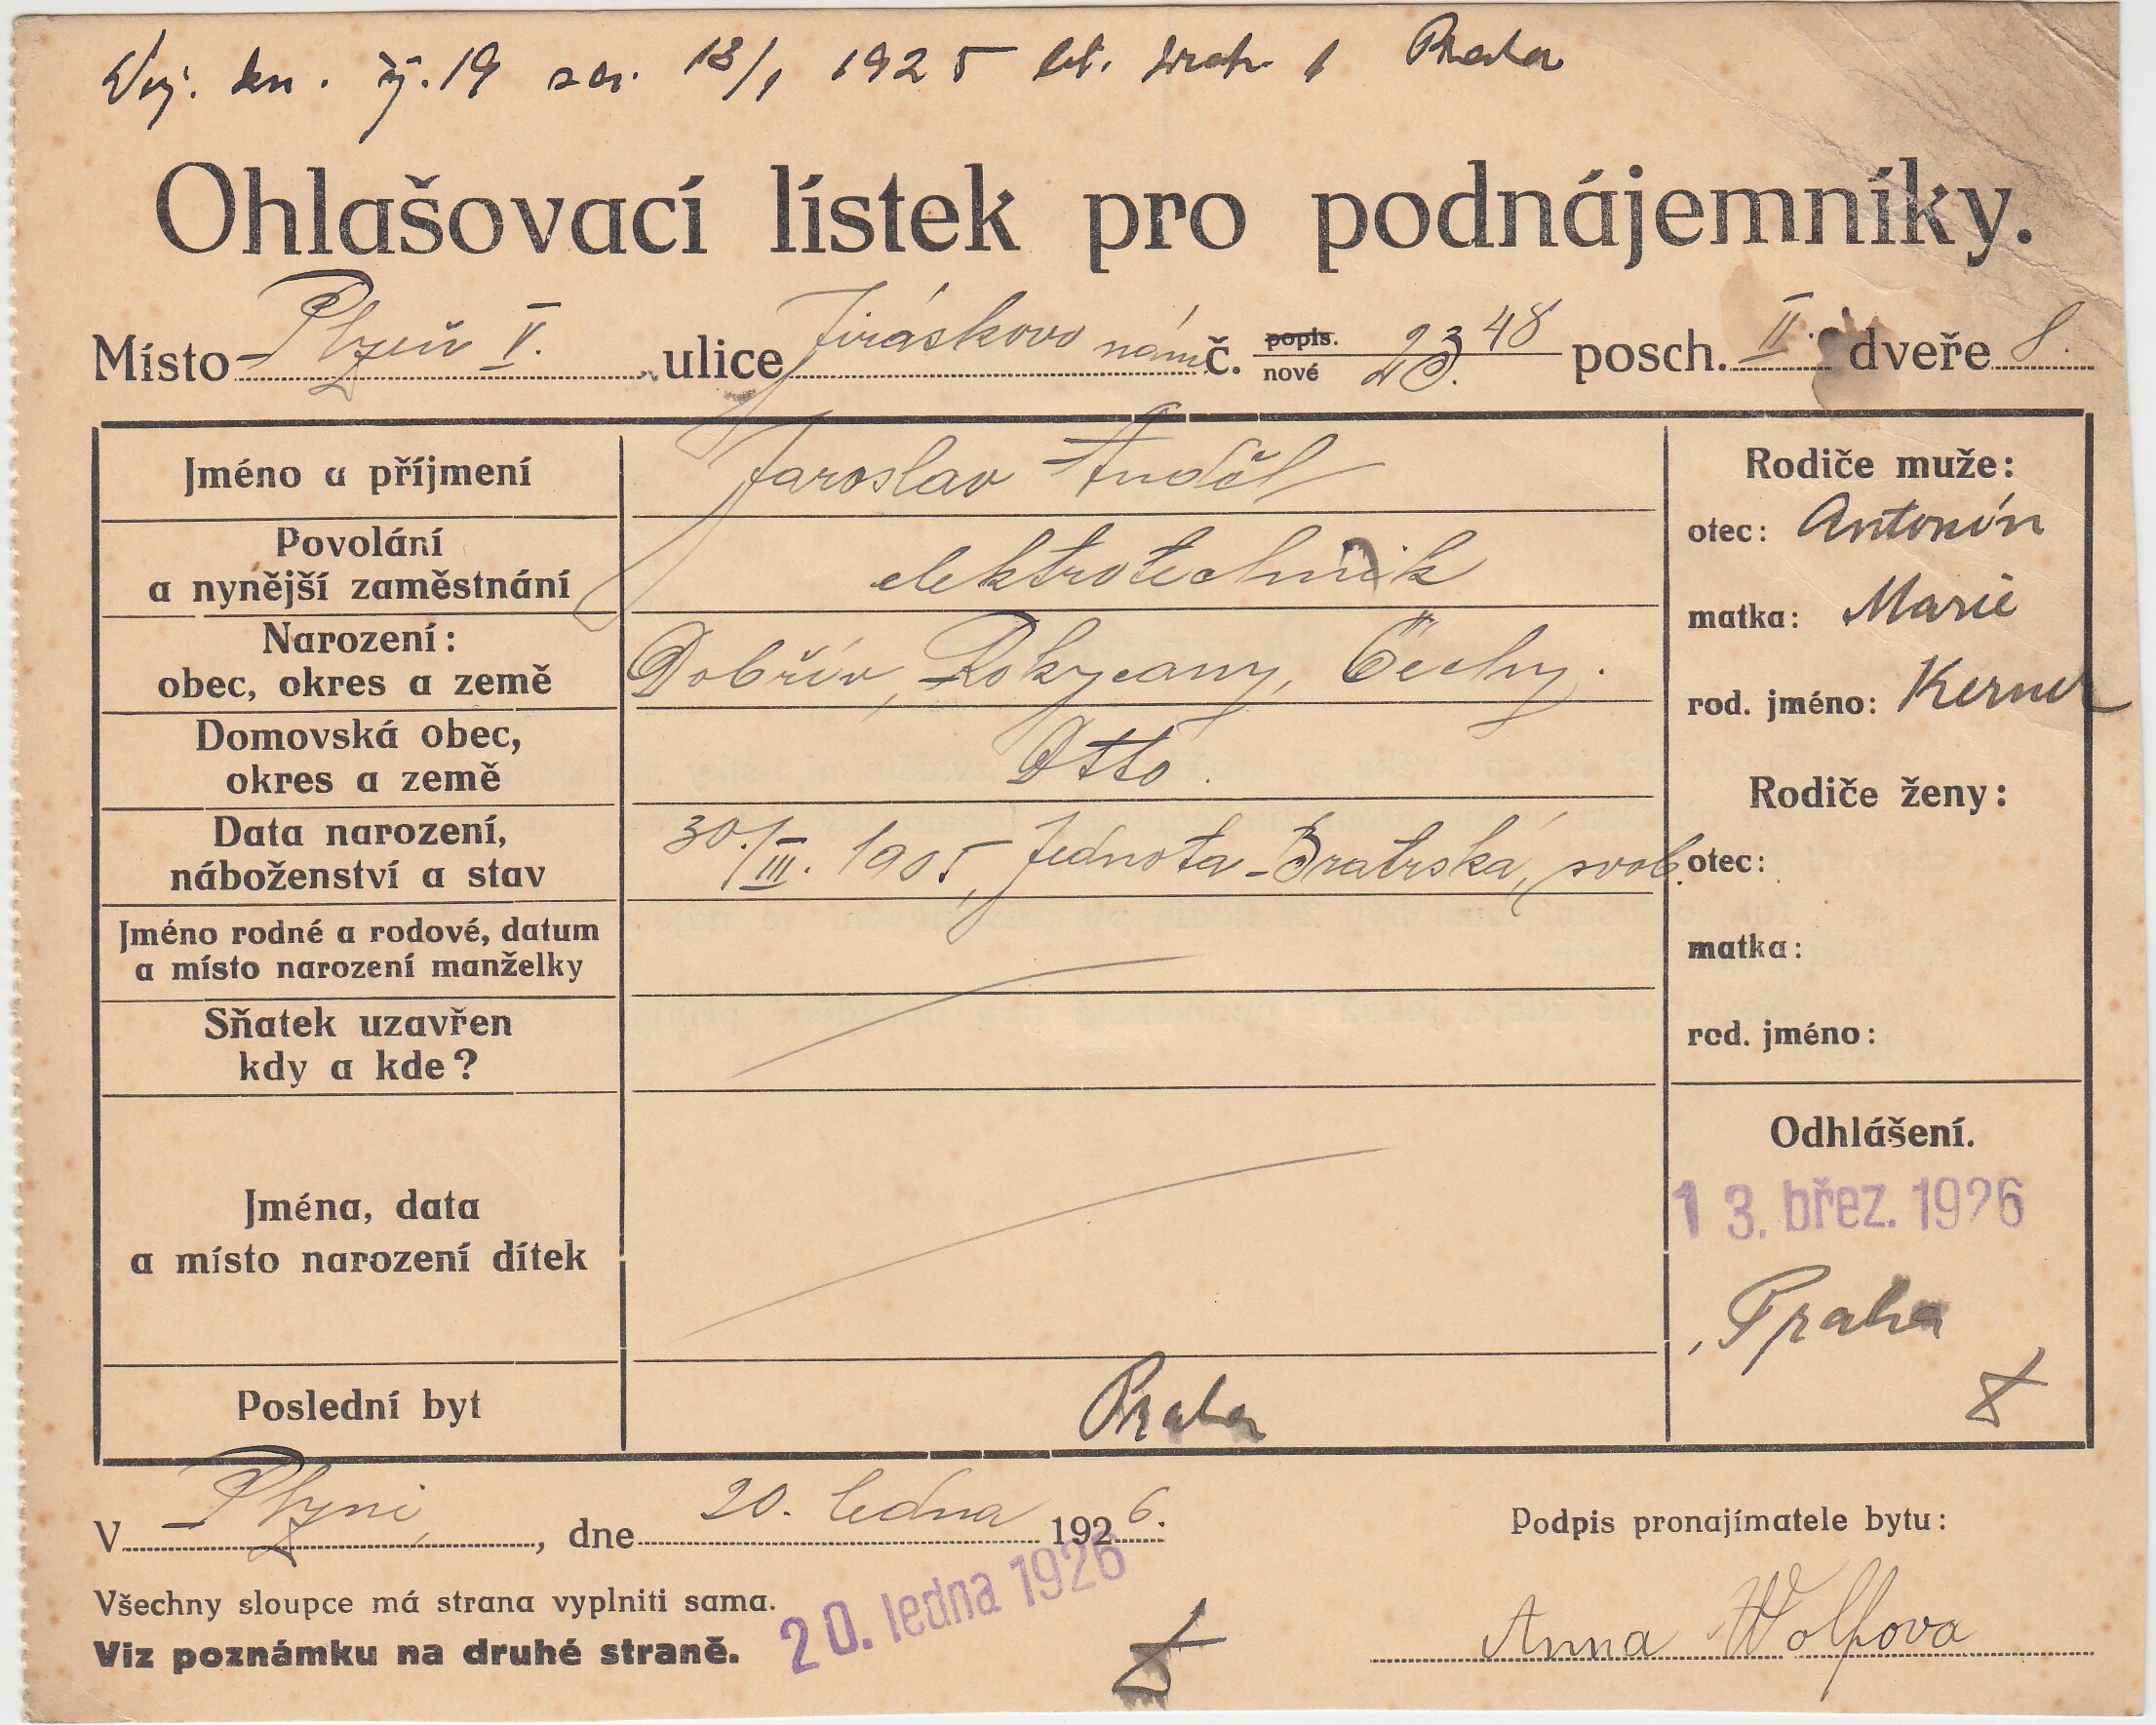 19 13/1 1925 Praha
Ohlašovací lístek pro podnájemníky.
Místo Plzeň V. ulice Jiráskovo nám. č. popis. nové 2348 23. posch. II. dveře 8.
Jméno a příjmení Jaroslav Anděl
Povolání
a nynější zaměstnání elektrotechnik
Narození:
obec, okres a země Dobřív, Rokycany, Čechy.
Domovská obec,
okres a země Dtto.
Data narození,
náboženství a stav 30./III. 1905, Jednota-Bratrská, svob.
Jméno rodné a rodové, datum
a místo narození manželky
Sňatek uzavřen
kdy a kde?
Jména, data
a místo narození dítek
Poslední byt Praha
Rodiče muže:
otec: Antonín
matka: Marie
rod. jméno: Kerner
Rodiče ženy:
otec:
matka:
rod. jméno:
Odhlášení.
13. břez. 1926
Praha
V Plzni, dne 20. ledna 1926.
Všechny sloupce má strana vyplniti sama.
Viz poznámku na druhé straně.
20. ledna 1926
Podpis pronajímatele bytu:
Anna Wolfova